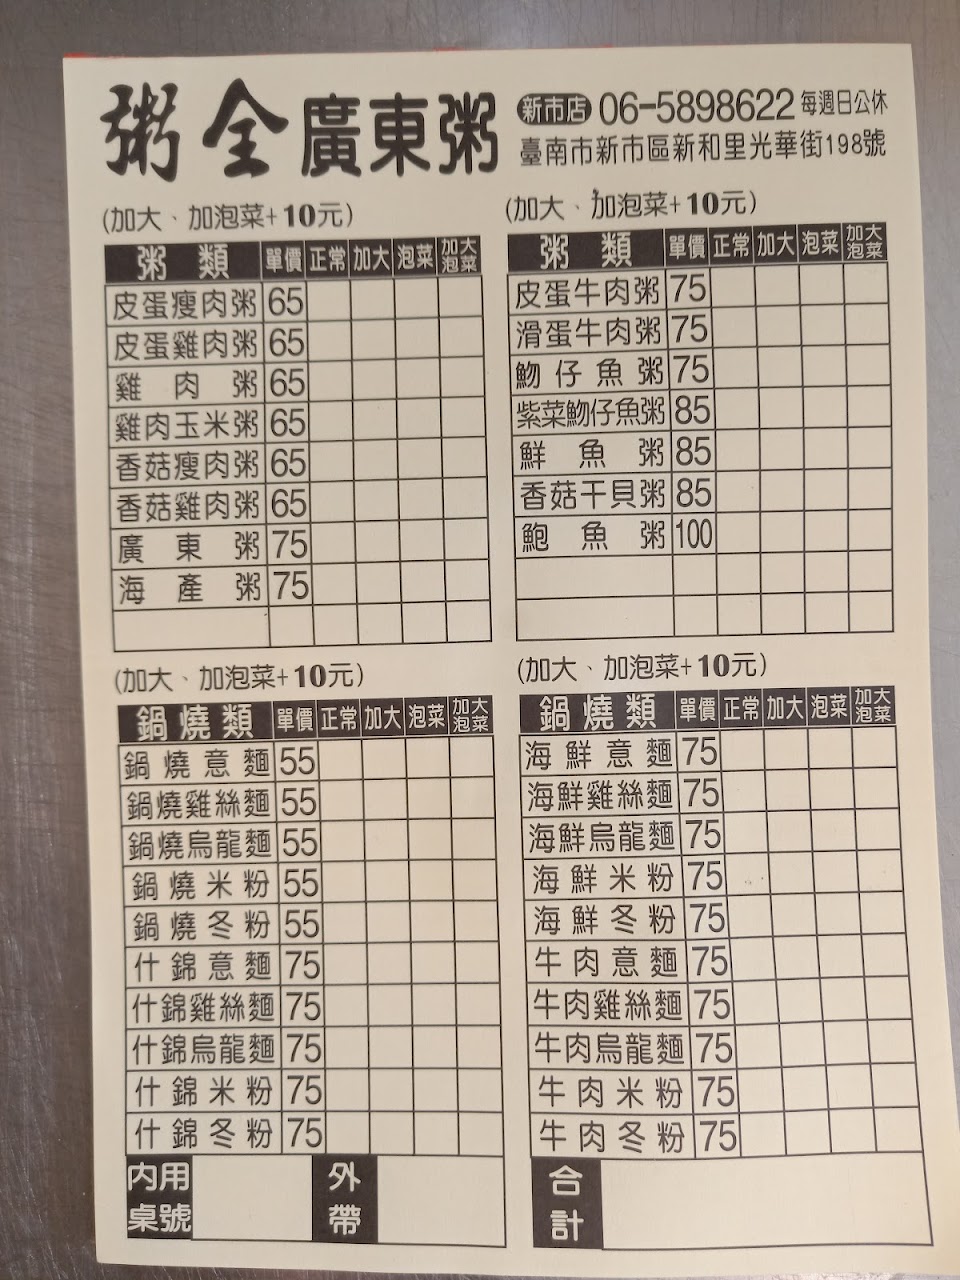 粥全廣東粥 新市店 06-5898622 每週日公休
臺南市新市區新和里光華街198號
(加大、加泡菜+10元)
粥類 單價 正常 加大 泡菜 加大泡菜
皮蛋瘦肉粥 65
皮蛋雞肉粥 65
雞肉粥 65
雞肉玉米粥 65
香菇瘦肉粥 65
香菇雞肉粥 65
廣東粥 75
海產粥 75
(加大、加泡菜+10元)
粥類 單價 正常 加大 泡菜 加大泡菜
皮蛋牛肉粥 75
滑蛋牛肉粥 75
魩仔魚粥 75
紫菜魩仔魚粥 85
鮮魚粥 85
香菇干貝粥 85
鮑魚粥 100
(加大、加泡菜+10元)
鍋燒類 單價 正常 加大 泡菜 加大泡菜
鍋燒意麵 55
鍋燒雞絲麵 55
鍋燒烏龍麵 55
鍋燒米粉 55
鍋燒冬粉 55
什錦意麵 75
什錦雞絲麵 75
什錦烏龍麵 75
什錦米粉 75
什錦冬粉 75
(加大、加泡菜+10元)
鍋燒類 單價 正常 加大 泡菜 加大泡菜
海鮮意麵 75
海鮮雞絲麵 75
海鮮烏龍麵 75
海鮮米粉 75
海鮮冬粉 75
牛肉意麵 75
牛肉雞絲麵 75
牛肉烏龍麵 75
牛肉米粉 75
牛肉冬粉 75
內用桌號 外帶 合計